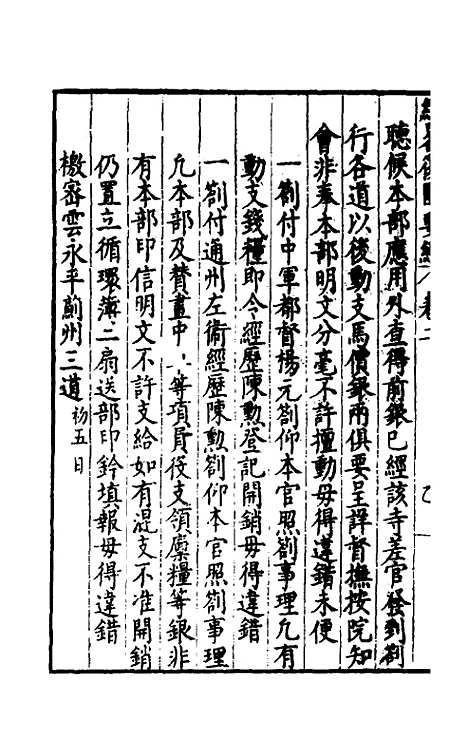 經畧復國要編 卷二
聽候本部應用外查得前銀已經該寺差官發到劄
行各道以後動支馬價銀兩俱要呈詳督撫按院知
會非奉本部明文分毫不許擅動毋得違錯未便
一劄付中軍都督楊元劄仰本官照劄事理凡有
動支錢糧即令經歷陳勲登記開銷毋得違錯
一劄付通州左衛經歷陳勲劄仰本官照劄事理
凡本部及賛畫中、等項員役支領廩糧等銀非
有本部印信明文不許支給如有混支不准開銷
仍置立循環簿二扇送部印鈐填報毋得違錯
檄密雲永平薊州三道 初五日